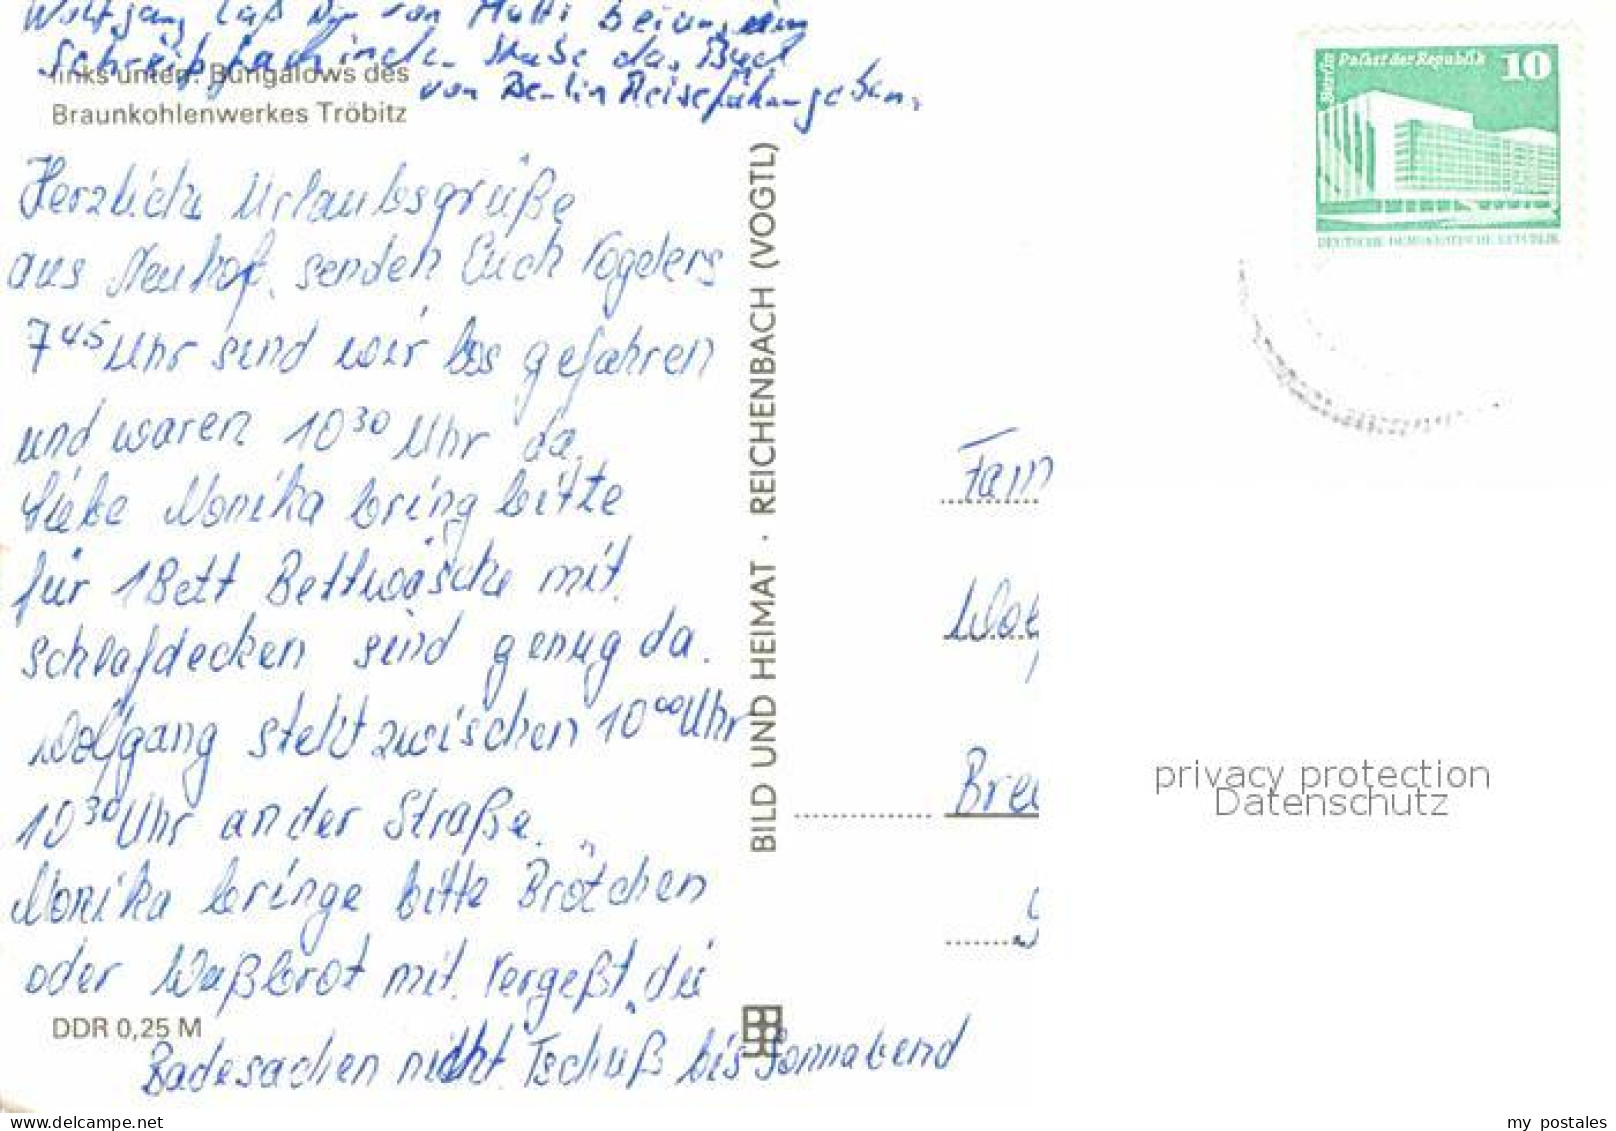 Wolfgang laß Dir von Mutti
Schreib
von Berlin Reiseführer geben.
links unten: Bungalows des
Braunkohlenwerkes Tröbitz
Herzliche Urlaubsgrüße
aus Neuhof, senden Euch Vogelers
7 45 Uhr sind wir los gefahren
und waren 10 30 Uhr da.
Liebe Monika bring bitte
für 1 Bett Bettwäsche mit.
Schlafdecken sind genug da.
Wolfgang steht zwischen 10 00 Uhr
10 30 Uhr an der Straße.
Monika bringe bitte Brötchen
oder Waßbrot mit. Vergeßt die
Badesachen nicht. Tschüß bis Sonnabend
DDR 0,25 M
BILD UND HEIMAT · REICHENBACH (VOGTL)
Berlin Palast der Republik 10
DEUTSCHE DEMOKRATISCHE REPUBLIK
Fam
Wol
Bre
privacy protection
Datenschutz
delcampe.net
my_postales